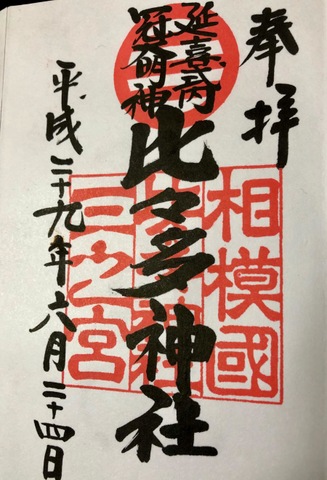 奉拝
延喜式内
冠明神
比々多神社
平成二十九年六月二十四日
相模國
三之宮